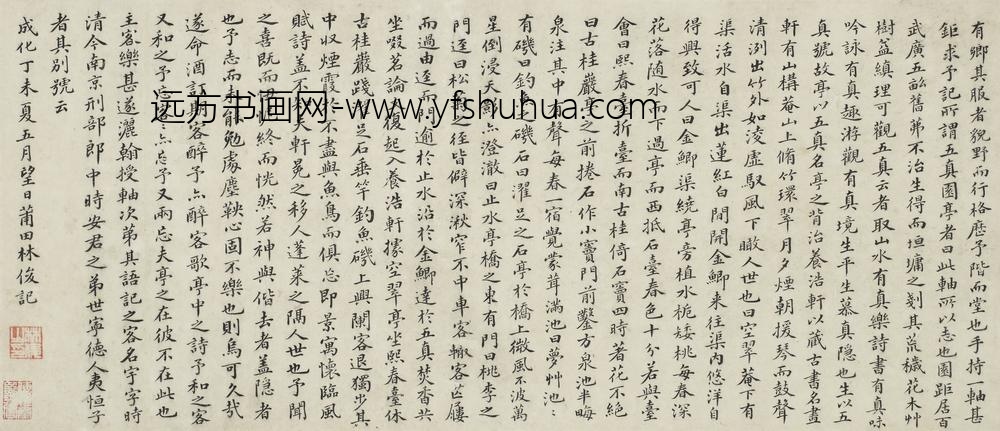 有卿其服者貌野而行格歷予階而堂也手持一軸甚
鉅求予記所謂五真園亭者曰此軸所以志也園距居百
武廣五畝舊弟不治生得而垣墉之剗其荒穢花木艸
樹益縝理可觀五真云者取山水有真樂詩書有真味
吟詠有真趣游觀有真境生平生慕真隱也生以五
真號故亭以五真名亭之背治養浩軒以蔵古書名畫
軒有山構菴山上脩竹環翠月夕煙朝援琴而鼓聲
清洌出竹外如淩虛馭風下瞰人世也曰空翠菴下有
渠活水自渠出蓮紅白閒開金鯽来往渠内悠洋自
得興致可人曰金鯽渠繞亭旁植水梔矮桃每春深
花落随水而下過亭而西抵石臺春色十分若與臺
會曰熙春臺折臺而南古桂倚石竇四時著花不絕
曰古桂巖亭之前捲石作小竇門前鑿方泉池半晦
泉注其中有聲每春一宿覺蒙茸滿池曰夢艸池〻
有磯曰釣魚磯石曰濯足之石亭於橋上微風不波萬
星倒浸天亦澄澈曰止水亭橋之東有門曰桃李之
門迳曰松徑皆僻深湫窄不中車客轍客亡屨
而過由迳而門逾於止水沿於金鯽達於五真焚香共
坐啜茗論復起入養浩軒攄空翠亭坐熙春臺休
古桂巖踐足石垂竿釣魚磯上興闌客退獨步其
中收煙霞不盡與魚鳥而俱忘即景寓懐臨風
賦詩蓋不軒冕之移人蓬萊之隔人世也予聞
之喜既而終而恍然若神與偕去者蓋隱者
也予志而未能勉處塵鞅心固不樂也則烏可久哉
遂命酒客醉予亦醉客歌亭中之詩予和之客
又和之予忘予又兩忘夫亭之在彼不在此也
主客樂甚遂灑翰授軸次第其語記之客名宇字時
清今南京刑部郎中時安君之弟世寧德人夷恒子
者其別號云
成化丁未夏五月望日莆田林俊記
远方书画网-www.yfshuhua.com